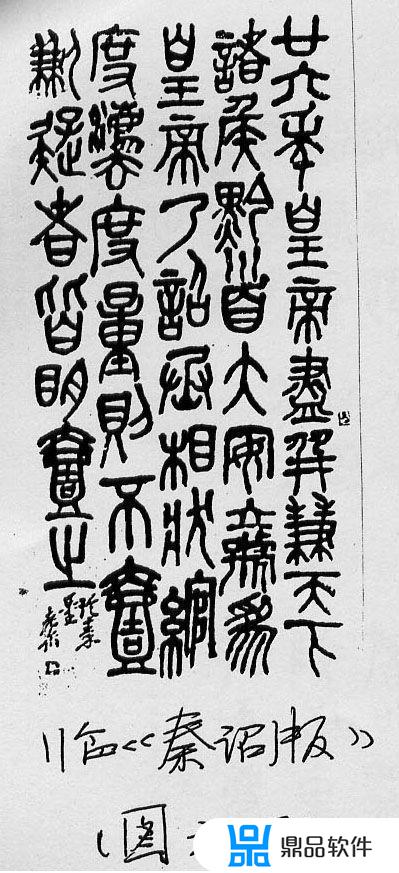 廿六年皇帝盡并兼天下
諸侯黔首大安立號為
皇帝乃詔丞相狀綰
度灋度量則不壹
歉疑者皆明壹之
临《秦诏版》
(图
鼎品软件